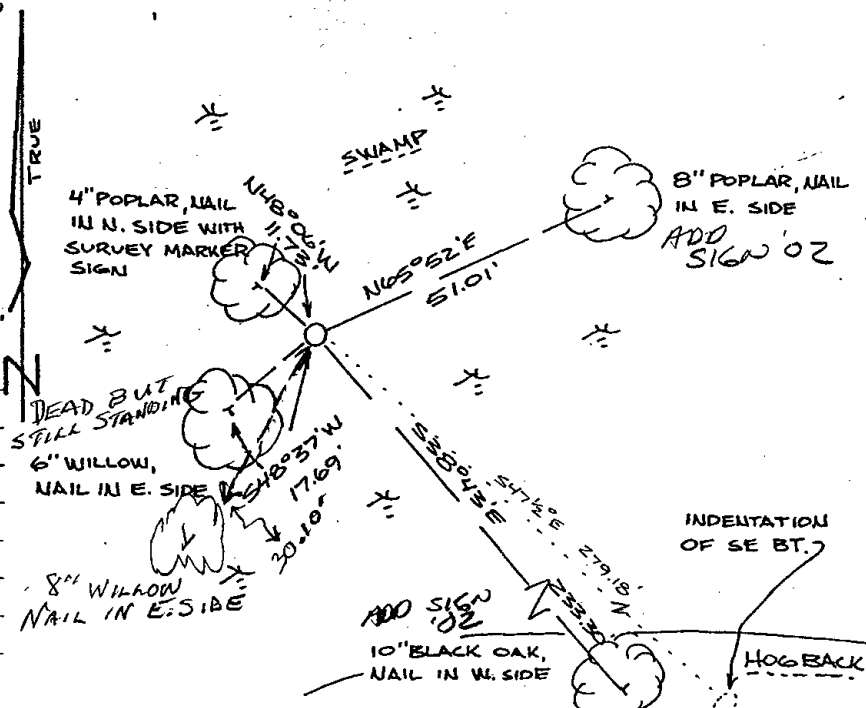 TRUE
N
SWAMP
4" POPLAR, NAIL
IN N. SIDE WITH
SURVEY MARKER
SIGN
N48°06'W
11.7'
8" POPLAR, NAIL
IN E. SIDE
ADD
SIGN '02
N65°52'E
51.01'
DEAD BUT
STILL STANDING
6" WILLOW,
NAIL IN E. SIDE
S48°37'W
17.69'
30.10'
8" WILLOW
NAIL IN E. SIDE
S38°43'E
233.30'
S47½°E 279.18'
INDENTATION
OF SE BT.
ADD SIGN
'02
10" BLACK OAK,
NAIL IN W. SIDE
HOGBACK